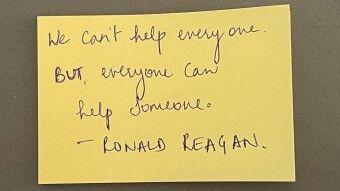 We can't help everyone.
BUT, everyone can
help someone.
- RONALD REAGAN.